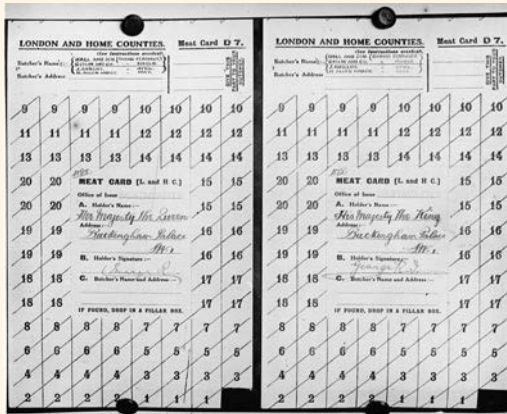 LONDON AND HOME COUNTIES. Meat Card D 7.
(See Instructions overleaf).
Butcher's Name
Butcher's Address
9 9 9 9 9 10 10 10 10
11 11 11 11 11 12 12 12 12
13 13 13 13 14 14 14 14
20 20 MEAT CARD [L. and H C.] 15 15
Office of Issue
20 20 A. Holder's Name:— 15 15
Her Majesty The Queen
Address:—
19 19 Buckingham Palace 16 16
19 19 16 16
B. Holder's Signature:—
18 18 17 17
C. Butcher's Name and Address
18 18 17 17
IF FOUND, DROP IN A PILLAR BOX.
8 8 8 8 8 7 7 7 7
6 6 6 6 5 5 5 5
4 4 4 4 3 3 3 3
2 2 2 2 1 1
LONDON AND HOME COUNTIES. Meat Card D 7.
(See Instructions overleaf).
Butcher's Name
Butcher's Address
9 9 9 9 9 10 10 10 10
11 11 11 11 11 12 12 12 12
13 13 13 13 14 14 14 14
20 20 MEAT CARD [L. and H C.] 15 15
Office of Issue
20 20 A. Holder's Name:— 15 15
His Majesty The King
Address:—
19 19 Buckingham Palace 16 16
19 19 16 16
B. Holder's Signature:—
18 18 George 17 17
C. Butcher's Name and Address
18 18 17 17
IF FOUND, DROP IN A PILLAR BOX.
8 8 8 8 8 7 7 7 7
6 6 6 6 5 5 5 5
4 4 4 4 3 3 3 3
2 2 2 2 1 1